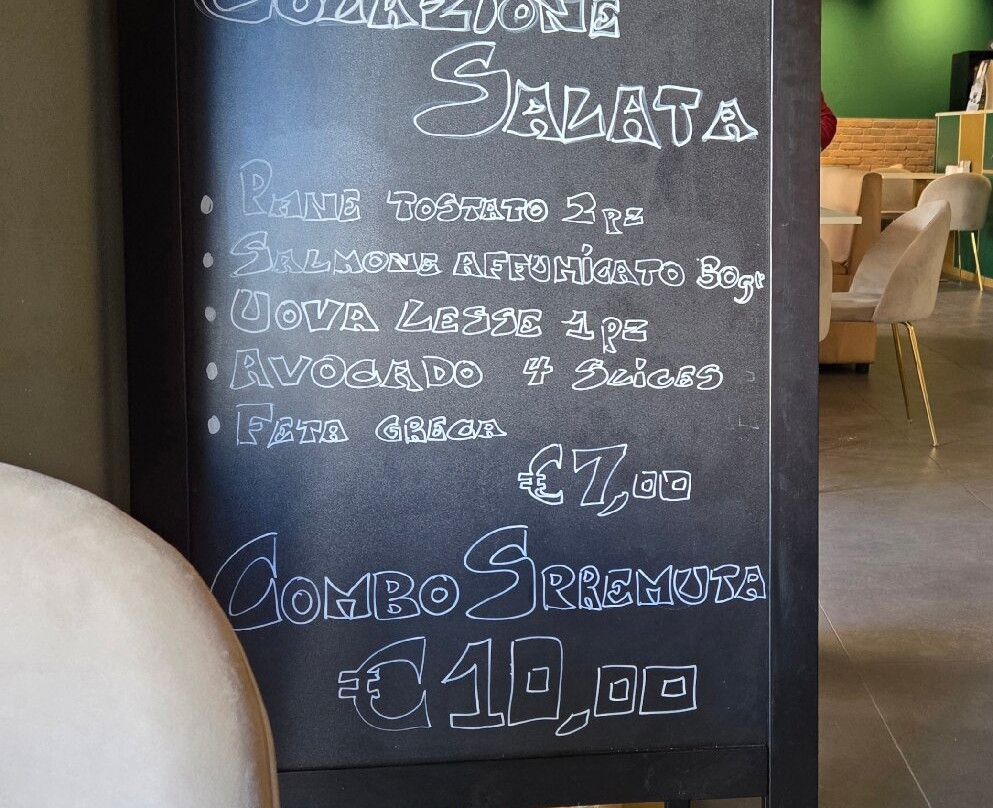 COLAZIONE
SALATA
• PANE TOSTATO 2 pz
• SALMONE AFFUMICATO 30gr
• UOVA LESSE 1 pz
• AVOCADO 4 SLICES
• FETA GRECA
€7,00
COMBO SPREMUTA
€10,00